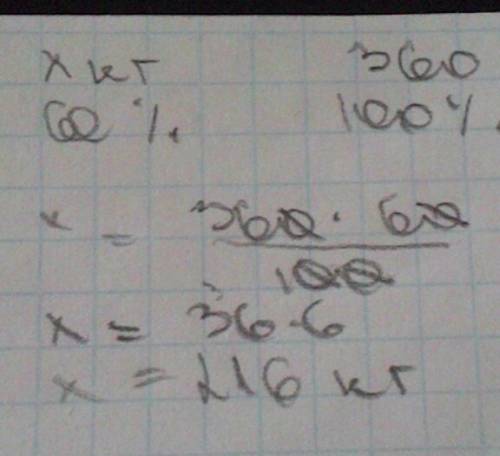 x кг 360
60 % 100%
x = 360 · 60
100
x = 36·6
x = 216 кг